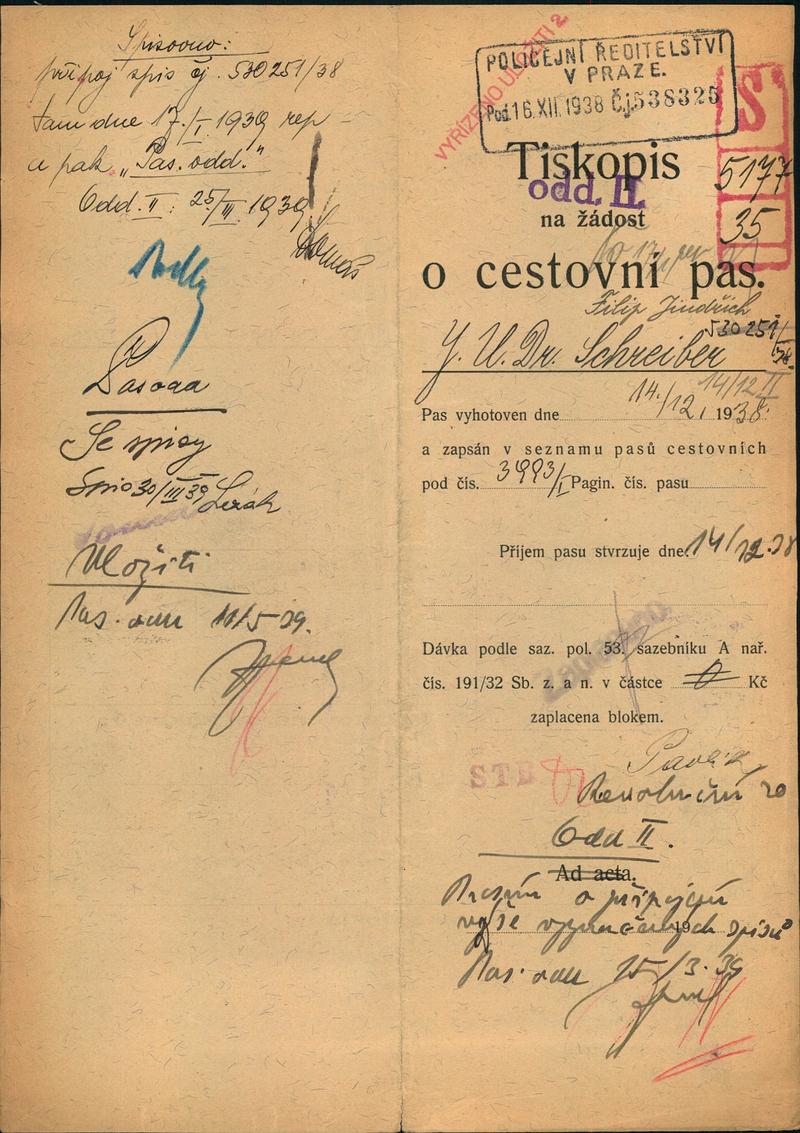 Spisovno:
připoj spis čj. 530251/38
tam dne 17./I. 1939 rep
a pak „Pas. odd."
Odd. II: 25/III 1939
Se spisy
30/III 39
Uložiti
Pas. 11/5 39.
VYŘÍZENO ULOŽITI 2
POLICEJNÍ ŘEDITELSTVÍ
V PRAZE.
Pod. 16.XII.1938 Č.j. 538325
S
5177
35
Tiskopis
odd. II.
na žádost
o cestovní pas.
Filip Jindřich
530251/38.
J. U. Dr. Schreiber
14/12 II
Pas vyhotoven dne 14./12. 1938.
a zapsán v seznamu pasů cestovních
pod čís. 3993/I Pagin. čís. pasu
Příjem pasu stvrzuje dne 14/12.38
Dávka podle saz. pol. 53. sazebníku A nař.
čís. 191/32 Sb. z. a n. v částce 0 Kč
zaplacena blokem.
STB
Revoluční 20
Odd II.
Ad acta.
Prosím o připojení
výše vyznačených spisů
19
Pas. 15/3. 39